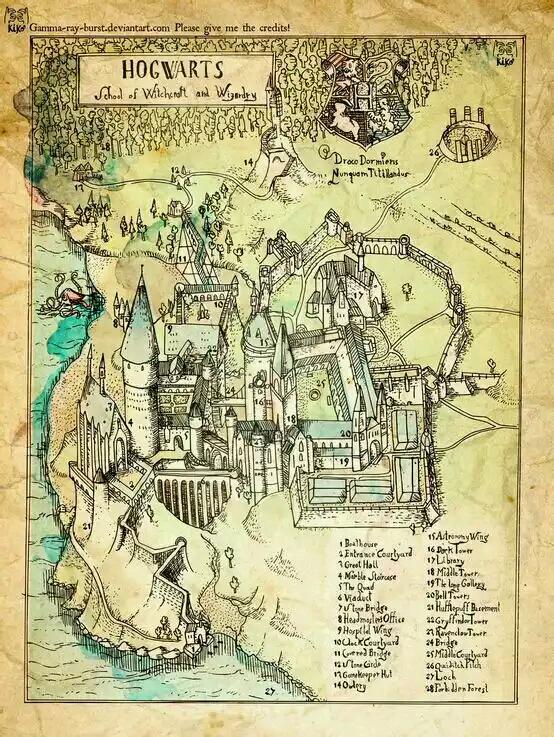 KiKe
Gamma-ray-burst.deviantart.com Please give me the credits!
KiKe
HOGWARTS
School of Witchcraft and Wizardry
Draco Dormiens
Nunquam Titillandus
14
26
12
13
11
10
17
8
9
15
7
16
25
4
18
20
19
21
27
1 Boathouse
2 Entrance Courtyard
3 Great Hall
4 Marble Staircase
5 The Quad
6 Viaduct
7 Stone Bridge
8 Headmasters Office
9 Hospital Wing
10 Clock Courtyard
11 Covered Bridge
12 Stone Circle
13 Gamekeeper Hut
14 Owlery
15 Astronomy Wing
16 Dark Tower
17 Library
18 Middle Tower
19 The Long Gallery
20 Bell Towers
21 Hufflepuff Basement
22 Gryffindor Tower
23 Ravenclaw Tower
24 Bridge
25 Middle Courtyard
26 Quidditch Pitch
27 Loch
28 Forbidden Forest